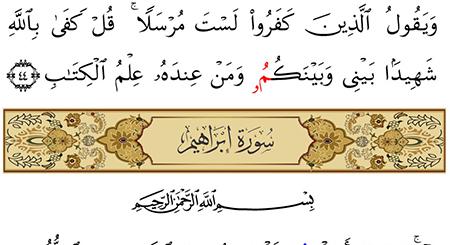 وَيَقُولُ ٱلَّذِينَ كَفَرُوا۟ لَسْتَ مُرْسَلًا ۚ قُلْ كَفَىٰ بِٱللَّهِ
شَهِيدًۢا بَيْنِى وَبَيْنَكُمُۥ وَمَنْ عِندَهُۥ عِلْمُ ٱلْكِتَٰبِ ﴿٤٤﴾
سُورَةُ إِبْرَاهِيم
بِسْمِ ٱللَّهِ ٱلرَّحْمَٰنِ ٱلرَّحِيمِ